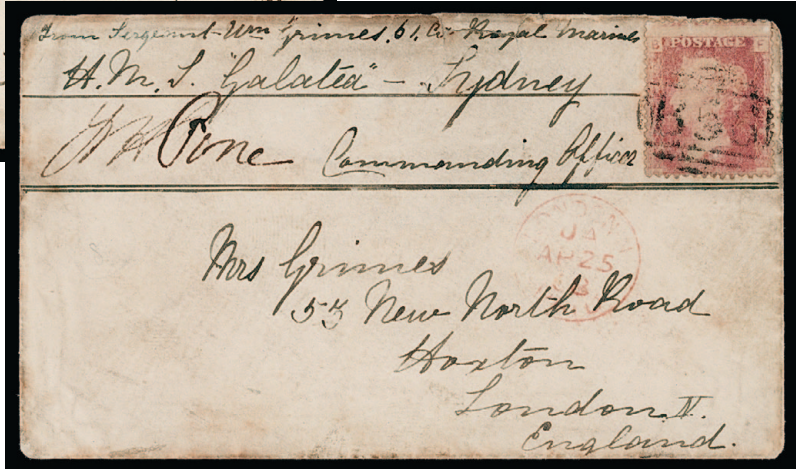 From Sergeant Wm Grimes, 61. Co. Royal Marines
H. M. S. "Galatea" - Sydney
Commanding Officer
B POSTAGE F
LONDON
JA
AP 25
68
Mrs Grimes
53 New North Road
Hoxton
London N.
England.